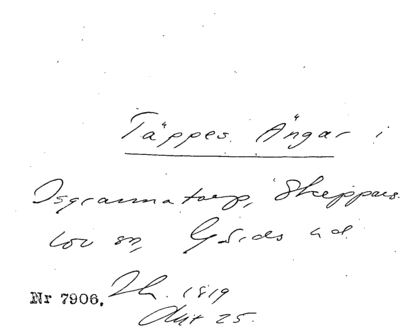 Täppes Ängar i
Isgrannatorp, Skeppars
lov sn, Gärds hd.
Nr 7906, 1819
Okt 25.